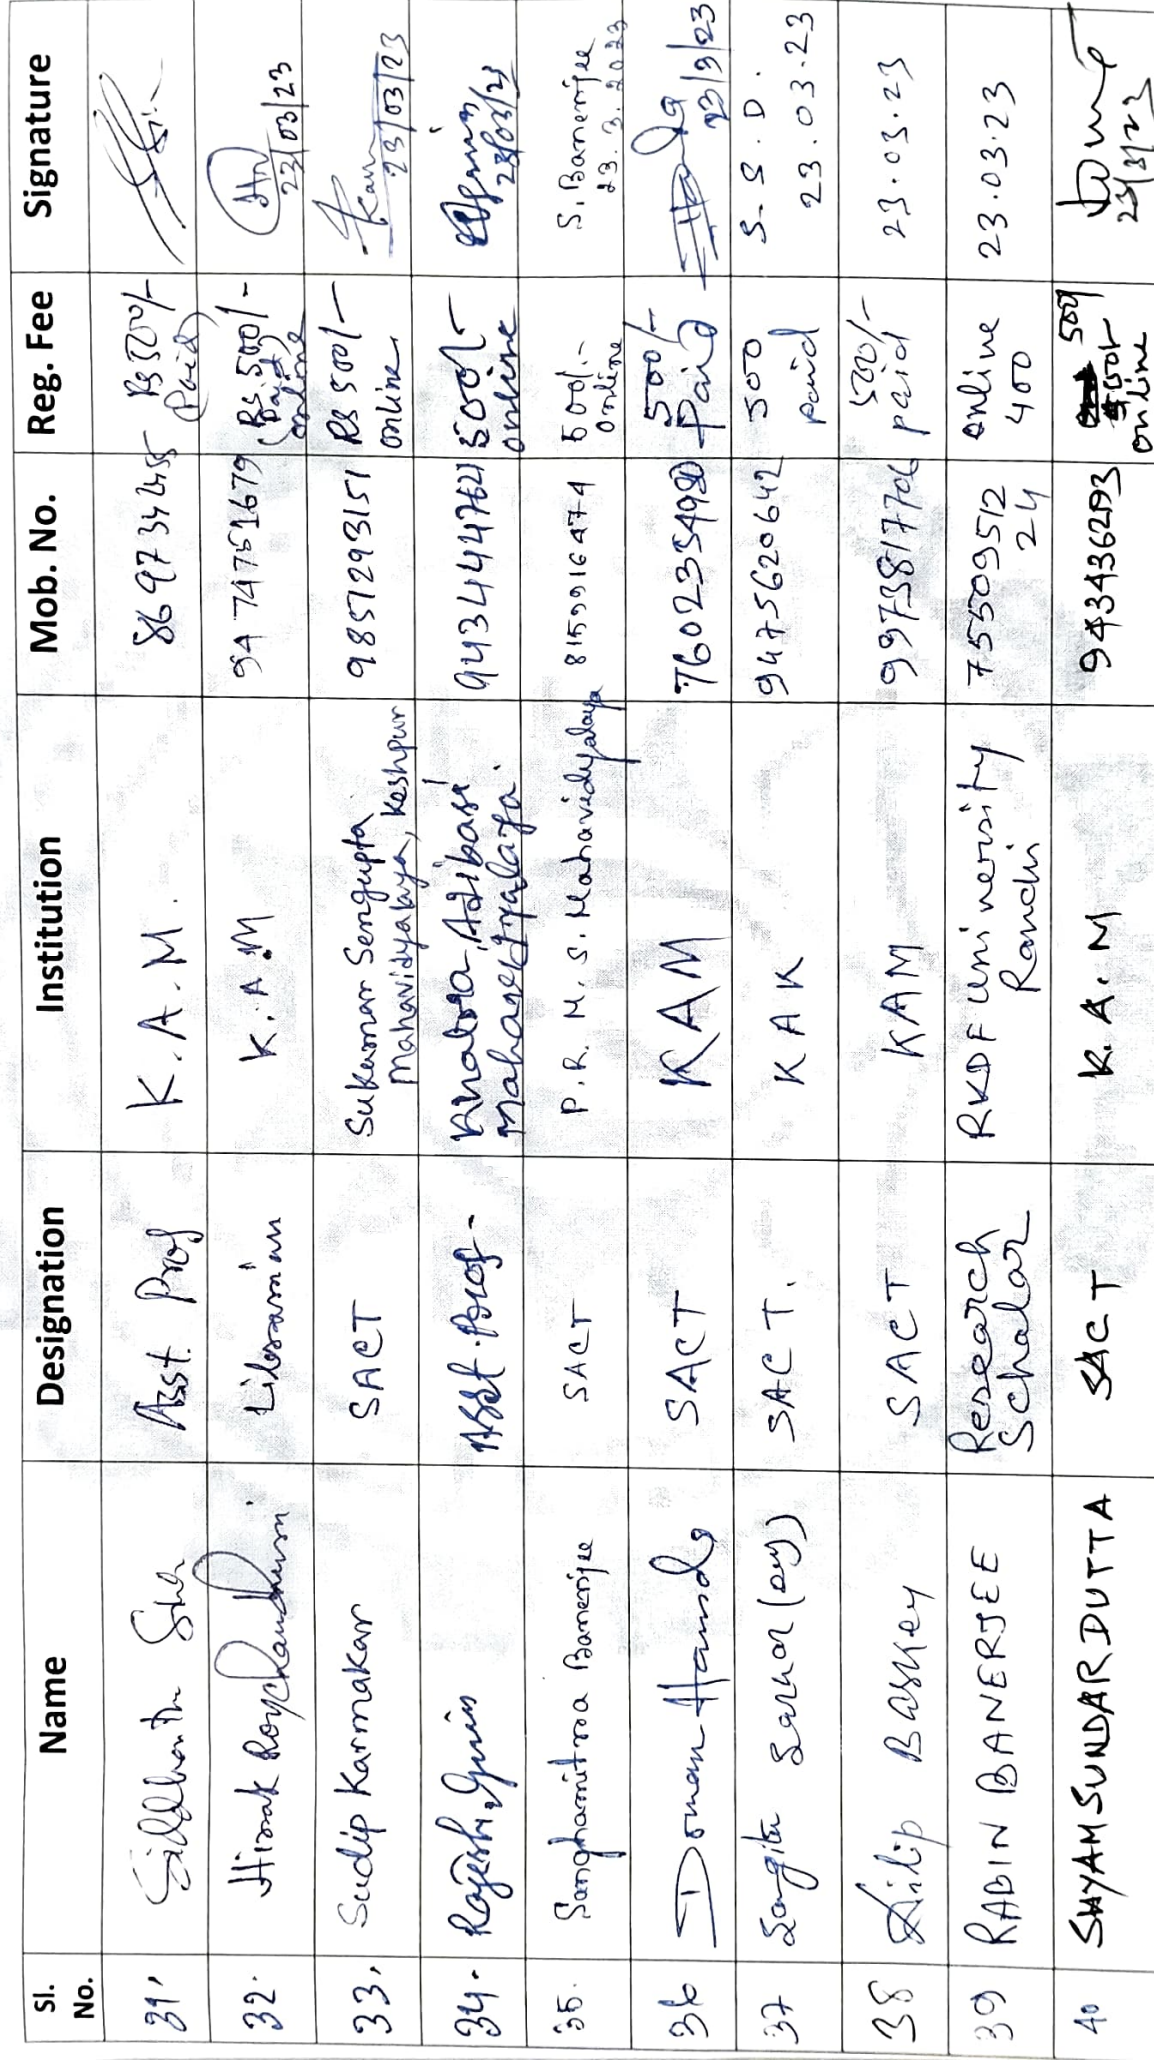 Sl. No. Name Designation Institution Mob. No. Reg. Fee Signature
31, Siddhartha Sen Asst. Prof K.A.M. Rs 500/- (Paid)
32. Hirak Roychaudhuri Librarian K.A.M 9474751679 Rs. 500/- (Paid) online 23/03/23
33, Sudip Karmakar SACT Sukumar Sengupta Mahavidyalaya, Keshpur 9851293151 Rs 500/- online 23/03/23
34. Rajesh Guin Asst. Prof- Khatra Adibasi Mahavidyalaya. 9434444764 500/- online 23/03/23
35. Sanghamitra Banerjee SACT P.R.M.S. Mahavidyalaya 8159916474 500/- online S. Banerjee 23.3.2023
36 Doman Hansda SACT KAM 500/- Paid Hansda 23/3/23
37 Sangita Sarkar (Dey) SACT. KAK 9475620642 500 paid S.S.D. 23.03.23
38 Dilip Baskey SACT KAM 500/- paid 23.03.23
39 RABIN BANERJEE Research Scholar RKDF University Ranchi 7550951224 online 400 23.03.23
40 SHYAM SUNDAR DUTTA SACT K.A.M 500/- online 23/3/23